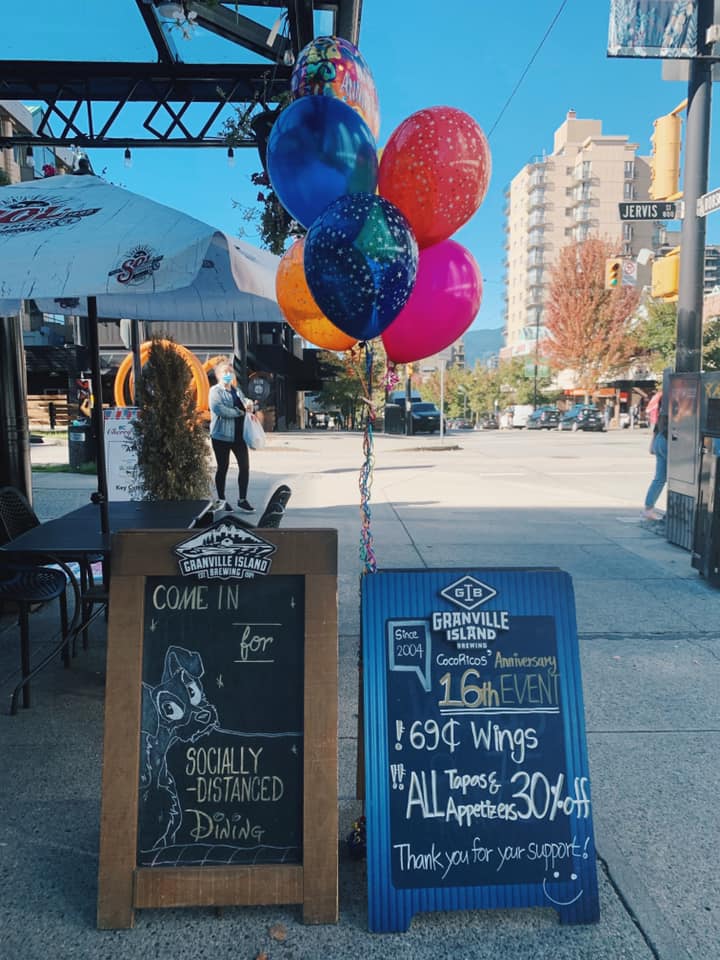 SOL
SOL
JERVIS ST
800
GRANVILLE ISLAND
EST BREWING 1984
COME IN
for
SOCIALLY
-DISTANCED
DINING
GIB
GRANVILLE
ISLAND
BREWING
Since
2004
CocoRicos' Anniversary
16th EVENT
!! 69¢ Wings
!! ALL Tapas & Appetizers 30% off
Thank you for your support!